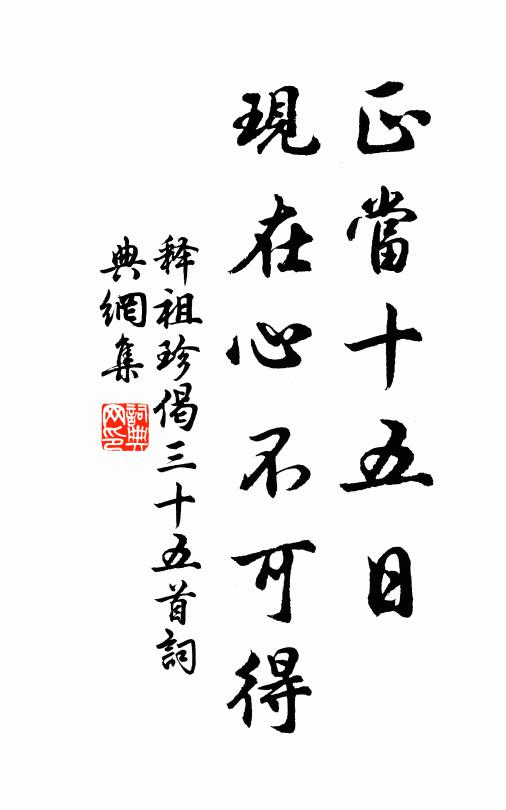 正當十五日
現在心不可得
释祖珍偈三十五首詞
典網集
詞典网印